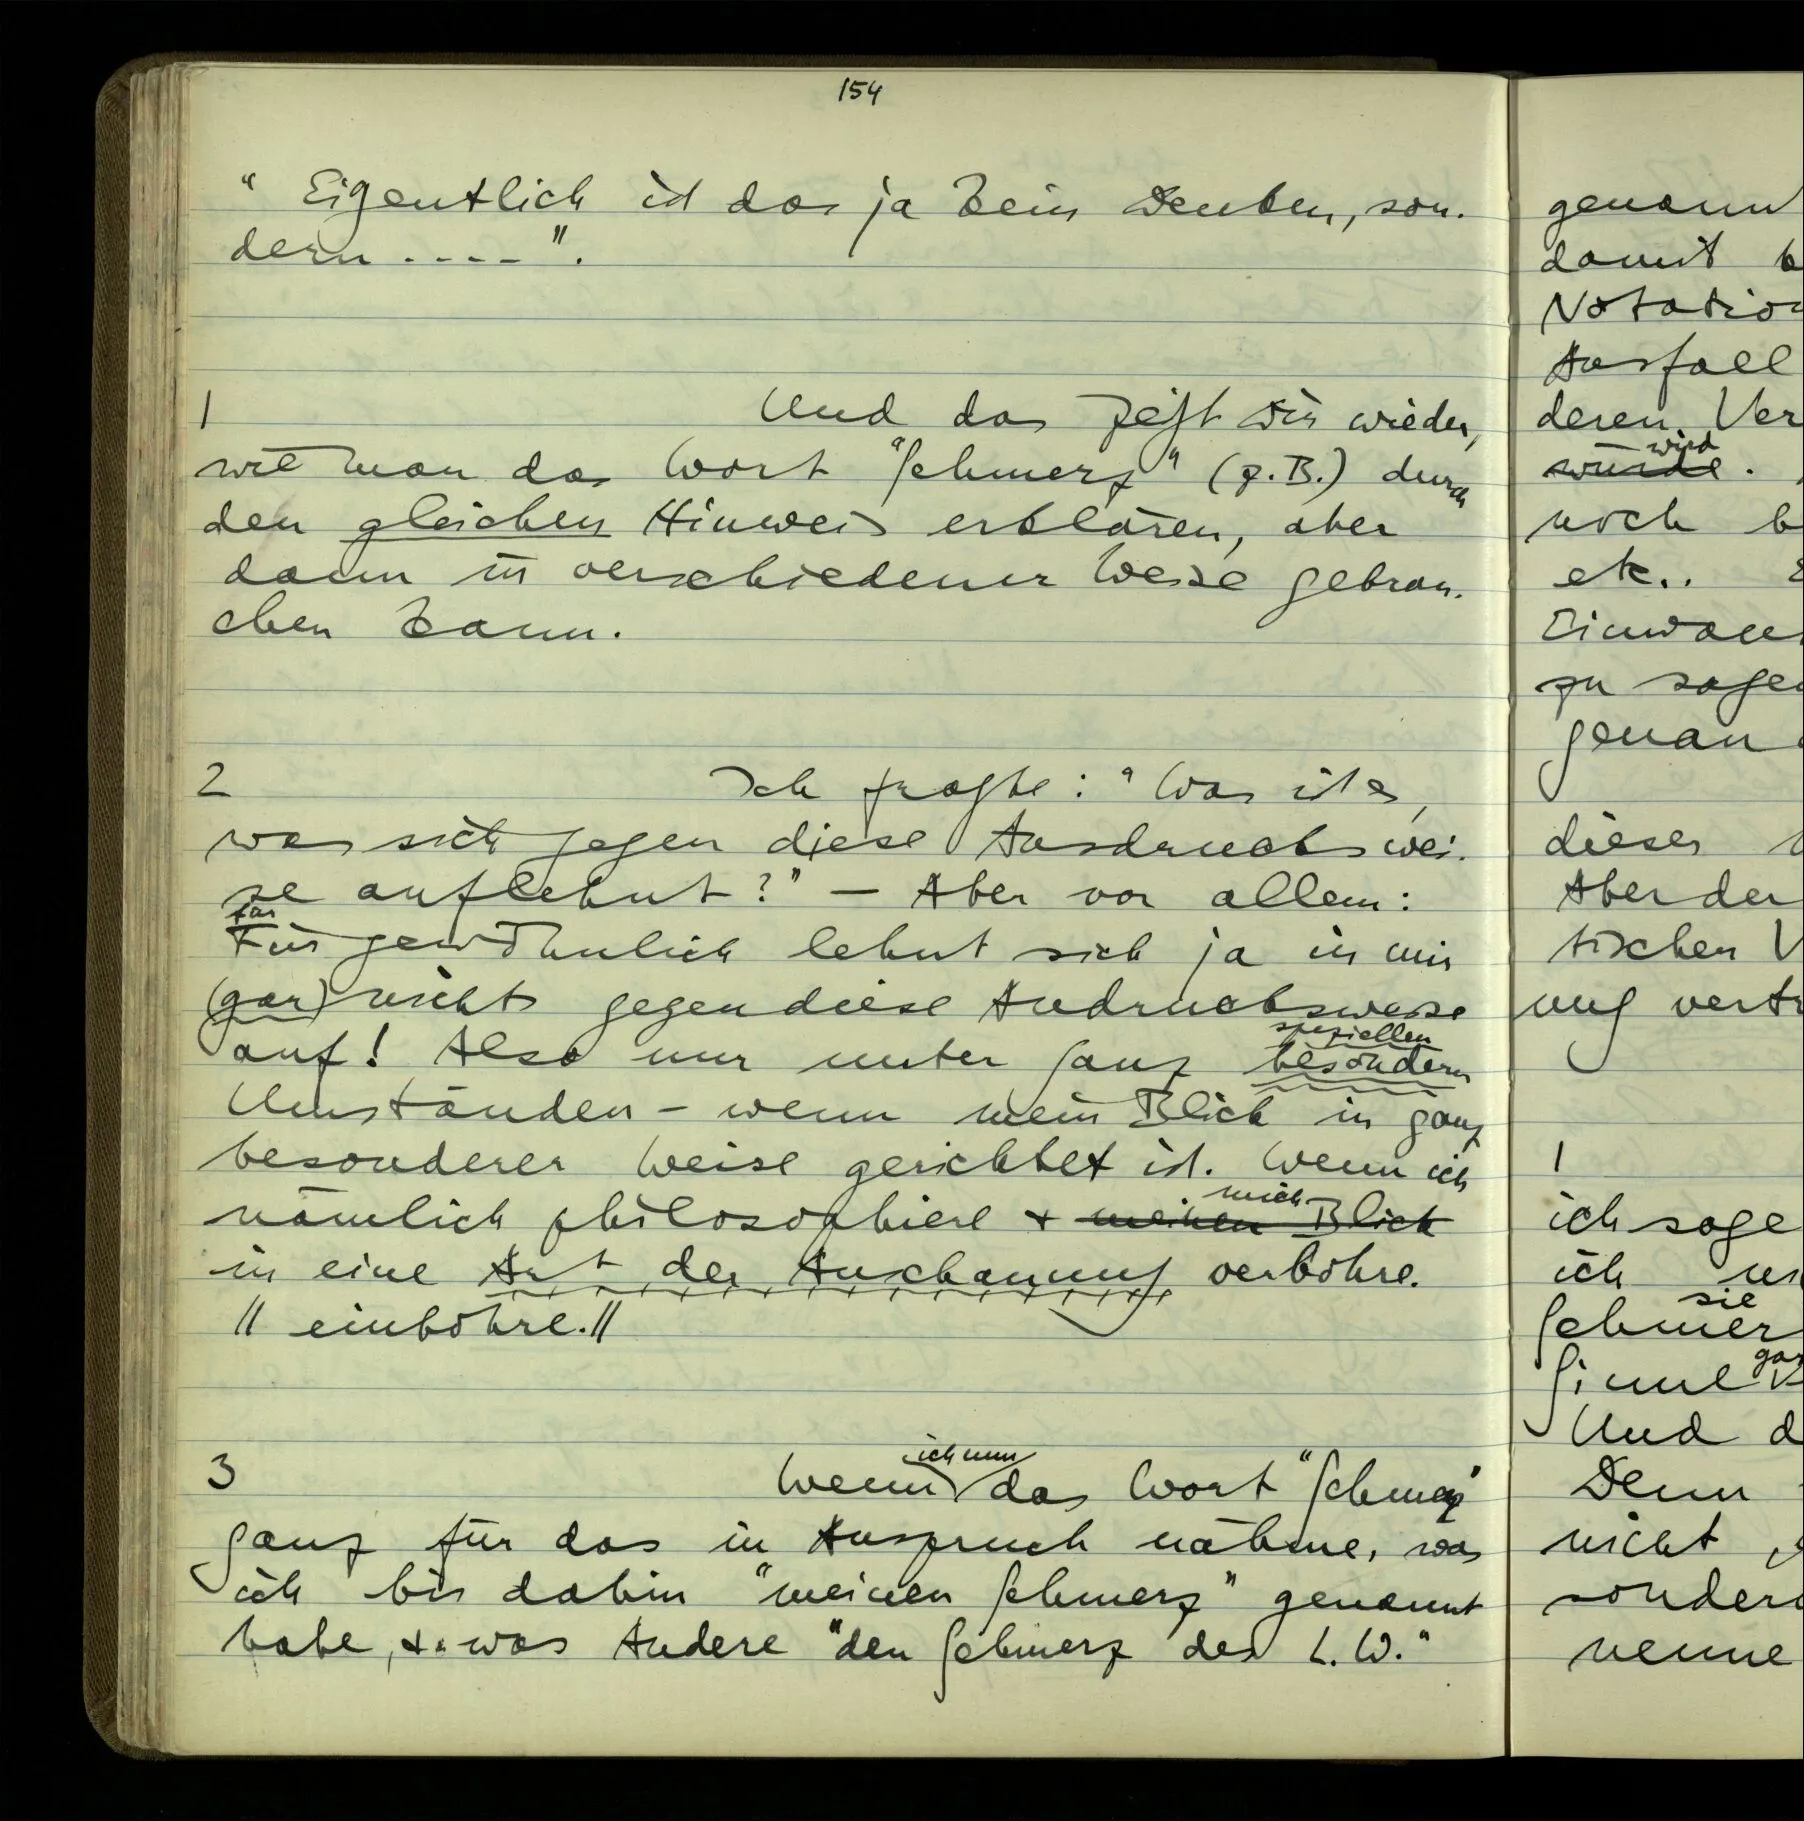 154
" Eigentlich ist das ja kein Denken, son-
dern . - - - ".
1 Und das zeigt wie wieder,
wie man das Wort "Schmerz" (z.B.) durch
den gleichen Hinweis erklären, aber
dann in verschiedener Weise gebrau-
chen kann.
2 Ich fragte: "Was ist es,
was sich gegen diese Ausdruckswei-
se auflehnt?" – Aber vor allem:
für
Für gewöhnlich lehnt sich ja in mir
(gar) nichts gegen diese Ausdrucksweise
auf! Also nur unter ganz besondern
speziellen
Umständen – wenn mein Blick in ganz
besonderer Weise gerichtet ist. Wenn ich
nämlich philosophiere + meinen Blick
mich
in eine Art der Anschauung verbohre.
// einbohre.//
3 Wenn ich nun das Wort "Schmerz"
ganz für das in Anspruch nähme, was
ich bis dahin "meinen Schmerz" genannt
habe, +. was Andere "den Schmerz des L.W."
genann
damit b
Notation
Ausfall
deren Ver
wird
würde.
noch b
etc..
Einwan
zu sagen
genau
dieser
Aber der
tischen V
ung vertr
1
ich sage
ich
sie
Schmer
Sinne
gar
Und d
Denn
nicht
sondern
nenne